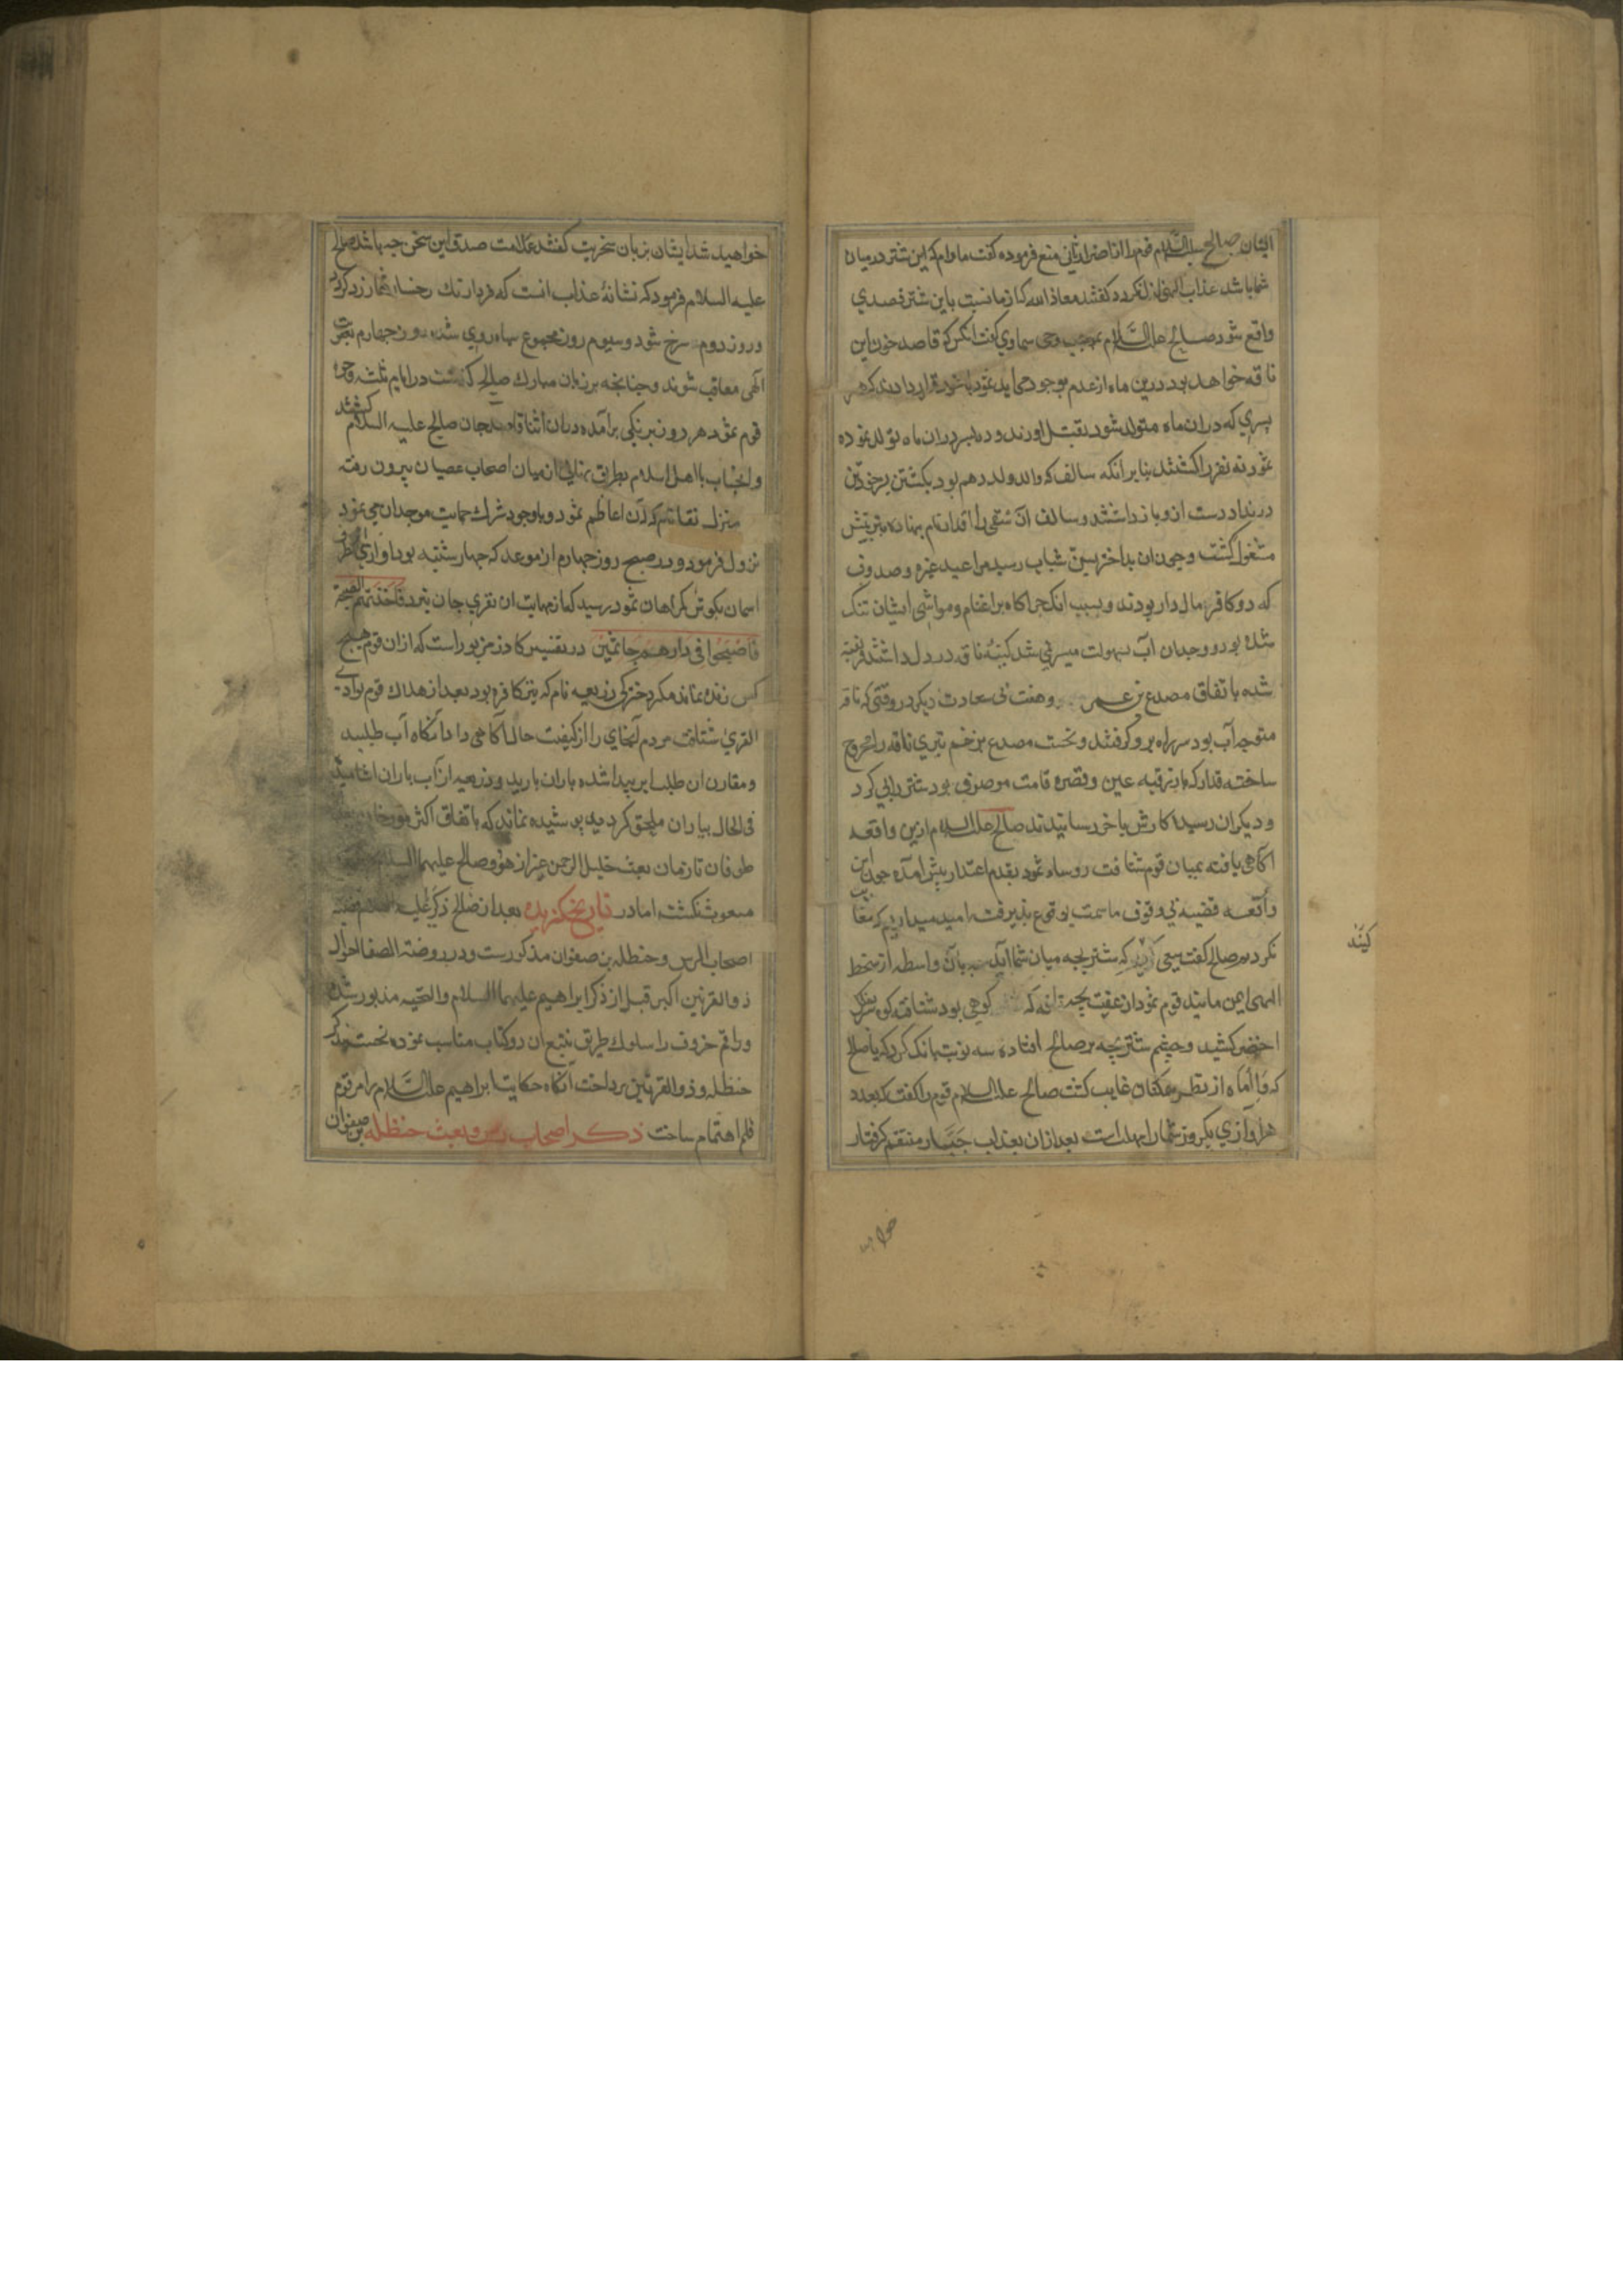 ایشان صالح علیه السلام قوم را از اضرار ناقه منع فرموده گفت مادام که این شتر در میان
شما باشد عذاب الهی نازل نکردد گفتند معاذ الله که از ما نسبت باین شتر قصدی
واقع شود صالح علیه السلام بموجب وحی سماوی گفت انکس که قاصد خون این
ناقه خواهد بود درین ماه از عدم بوجود می اید ثمود با خود قرار دادند که هر
پسری که دران ماه متولد شود بقتل اورند و ده پسر دران ماه تولد نموده
ثمود نه نفر را کشتند بنابر انکه سالف که والد ولد دهم بود بکشتن پسر خود تن
در نداد دست ازو باز داشتند و سالف ان شقی را قدار نام نهاده بتربیتش
مشغول کشت و چون ان بداختر بسن شباب رسید عنیزه و صدوف
که دو کافر مال دار بودند و بسبب انک چراکاه بر اغنام و مواشی ایشان تنک
شده بود و وجدان آب بسهولت میسر نمی شد کینه ناقه در دل داشتند فریفته
شده باتفاق مصدع بن و هفت بی سعادت دیکر در وقتی که ناقه
متوجه آب بود سر راه برو کرفتند و نخست مصدع بزخم تیری ناقه را مجروح
ساخته قدار که بازرقیه عین و قصره قامت موصوف بود شتر را پی کرد
و دیکران رسیدند کارش باخر رسانیدند صالح علیه السلام ازین واقعه
اکاهی یافته بمیان قوم شتافت روساء ثمود بقدم اعتذار پیش آمده چون این
واقعه قضیه بی وقوف ما سمت وقوع پذیرفت امید میداریم که معاتب
نکردیم صالح گفت سعی کنید که شتر بچه میان شما آید بان واسطه از سخط
الهی ایمن مانید قوم ثمود از عقب بچه ناقه که کوهی بود شتافته کوه سر بفلک
اخضر کشید و چشم شتر بچه بر صالح افتاده سه نوبت بانک کرد که یا صالح
که وا اماه از نظر همکنان غایب کشت صالح علیه السلام قوم را گفت که بعدد
هر اوازی یکروز شما را مهلت است بعد ازان بعذاب جبار منتقم کرفتار
کینه
خواهید شد ایشان بزبان سخریت گفتند علامت صدق این سخن چه باشد صالح
علیه السلام فرمود که نشانه عذاب انست که فردا رنک رخسار شما زرد کردد
و روز دوم سرخ شود و سیوم روز مجموع سیاه روی شده روز چهارم بعقوبت
آلهی معاقب شوند و چنانچه بر زبان مبارک صالح کذشت در ایام ثلثه وجوه
قوم ثمود هر روز برنکی برآمده دران اثنا قاصد جان صالح علیه السلام کشتند
و انجناب با اهل اسلام بطریق پنهانی از میان اصحاب عصیان بیرون رفته
بمنزل که از اعاظم ثمود و باوجود شرک حمایت موحدان می نمود
نزول فرمود و در صبح روز چهارم از موعد که چهارشنبه بود اوازی از طرف
اسمان بکوش کمراهان ثمود رسید که از نهایت ان نفری جان نبرد فاخذتهم الصیحة
فاصبحوا فی دارهم جاثمین در تفسیر کازرونی مزبور است که ازان قوم هیچ
کس زنده نماند مکر دخترکی زریعه نام که نیز کافره بود بعد از هلاک قوم بوادی
القری شتافت مردم آنجای را از کیفیت حال آکاهی داد آنکاه آب طلبید
و مقارن ان طلب ابر پیدا شده باران بارید و زریعه از آب باران اشامید
فی الحال بیاران ملحق کردید پوشیده نماند که باتفاق اکثر مورخان
طوفان تا زمان بعث خلیل الرحمن غیر از هود و صالح علیهما السلام
مبعوث نکشت اما در تاریخ کزیده بعد از صالح ذکر علیه السلام قضیه
اصحاب الرس و حنظله بن صفوان مذکورست و در روضة الصفا احوال
ذو القرنین اکبر قبل از ذکر ابراهیم علیهما السلام والتحیه مزبور شده
و راقم حروف را سلوک طریق تتبع ان دو کتاب مناسب نموده نخست بذکر
حنظله و ذو القرنین پرداخت آنکاه حکایت ابراهیم علیه السلام را مرقوم
قلم اهتمام ساخت ذکر اصحاب رس و بعث حنظله بن صفوان